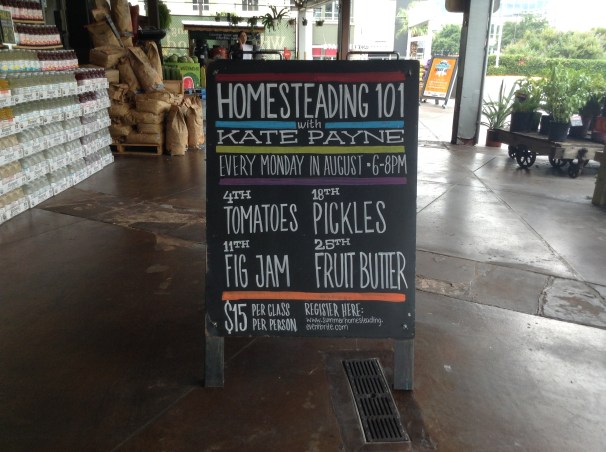 HOMESTEADING 101
with
KATE PAYNE
EVERY MONDAY IN AUGUST • 6-8PM
4TH
TOMATOES
18TH
PICKLES
11TH
FIG JAM
25TH
FRUIT BUTTER
$15 PER CLASS
PER PERSON
REGISTER HERE:
www.summerhomesteading.
eventbrite.com